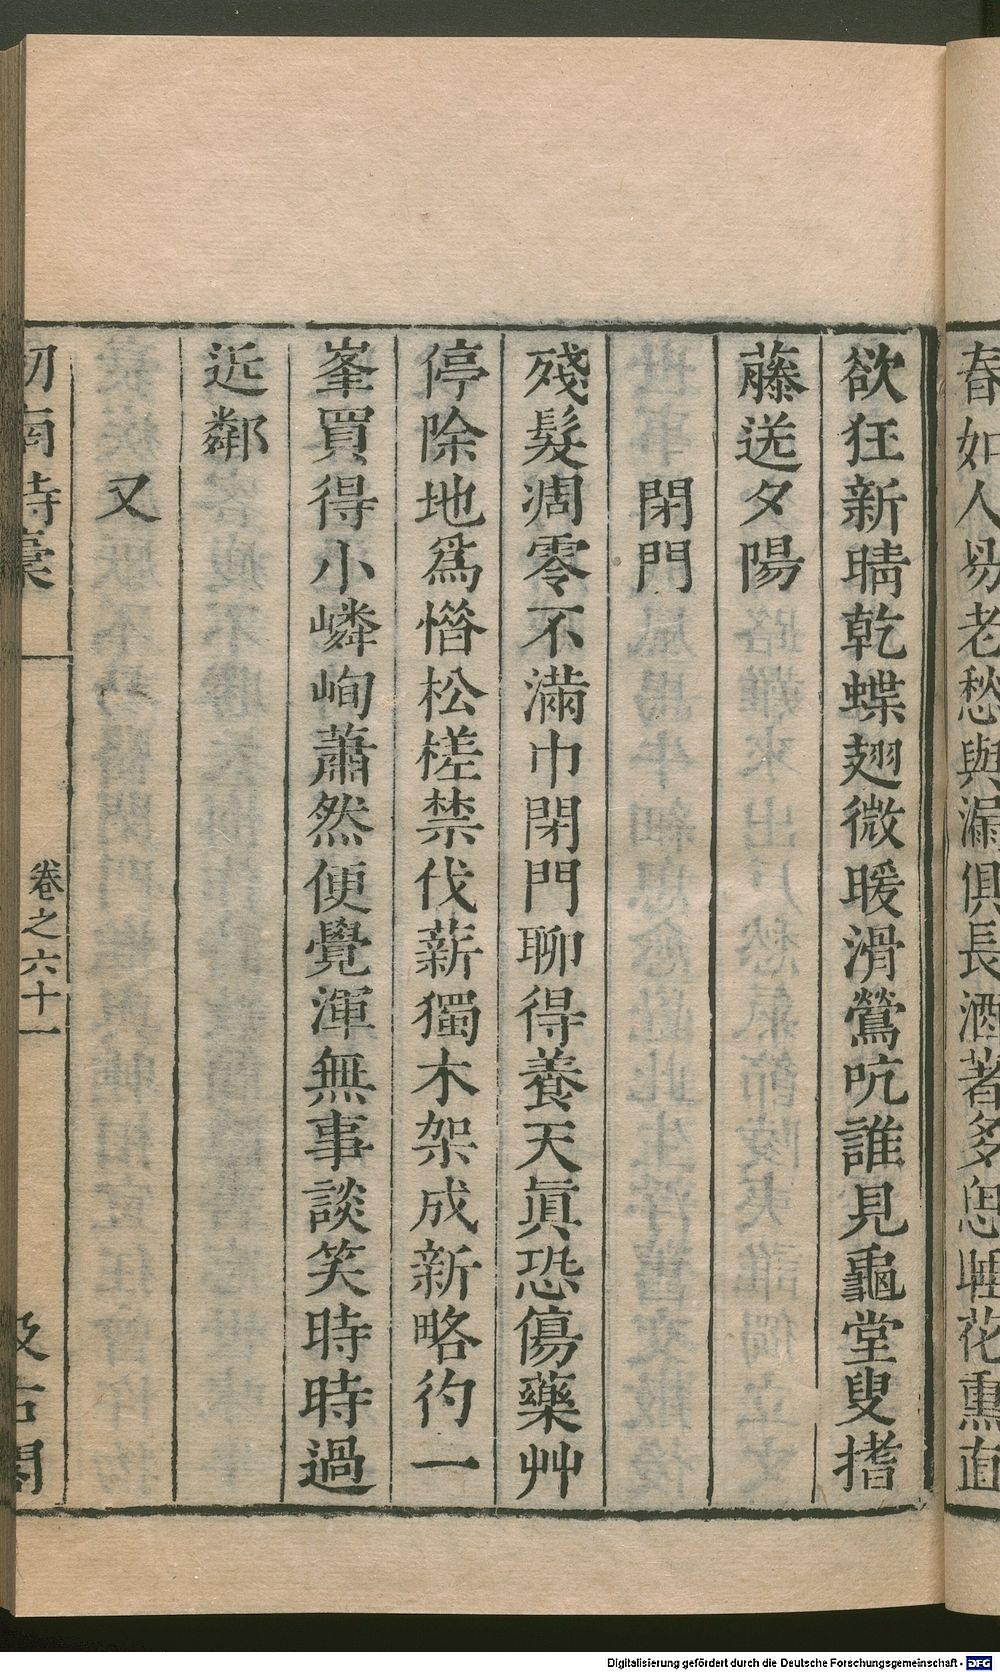 春如人易老愁與漏俱長酒著多怨睡花熏面
欲狂新晴乾蝶翅微暖滑鶯吭誰見龜堂叟搘
藤送夕陽
閉門
殘髮凋零不滿巾閉門聊得養天眞恐傷藥艸
停除地爲憯松槎禁伐薪獨木架成新略彴一
峯買得小嶙峋蕭然便覺渾無事談笑時時過
近鄰
又
劒南詩稾
卷之六十一
汲古閣
Digitalisierung gefördert durch die Deutsche Forschungsgemeinschaft - DFG